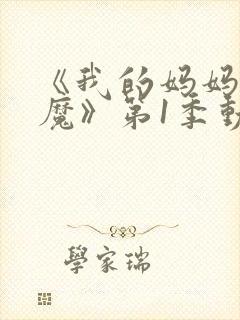 《我的妈妈
魔》第1季動
學家瑞